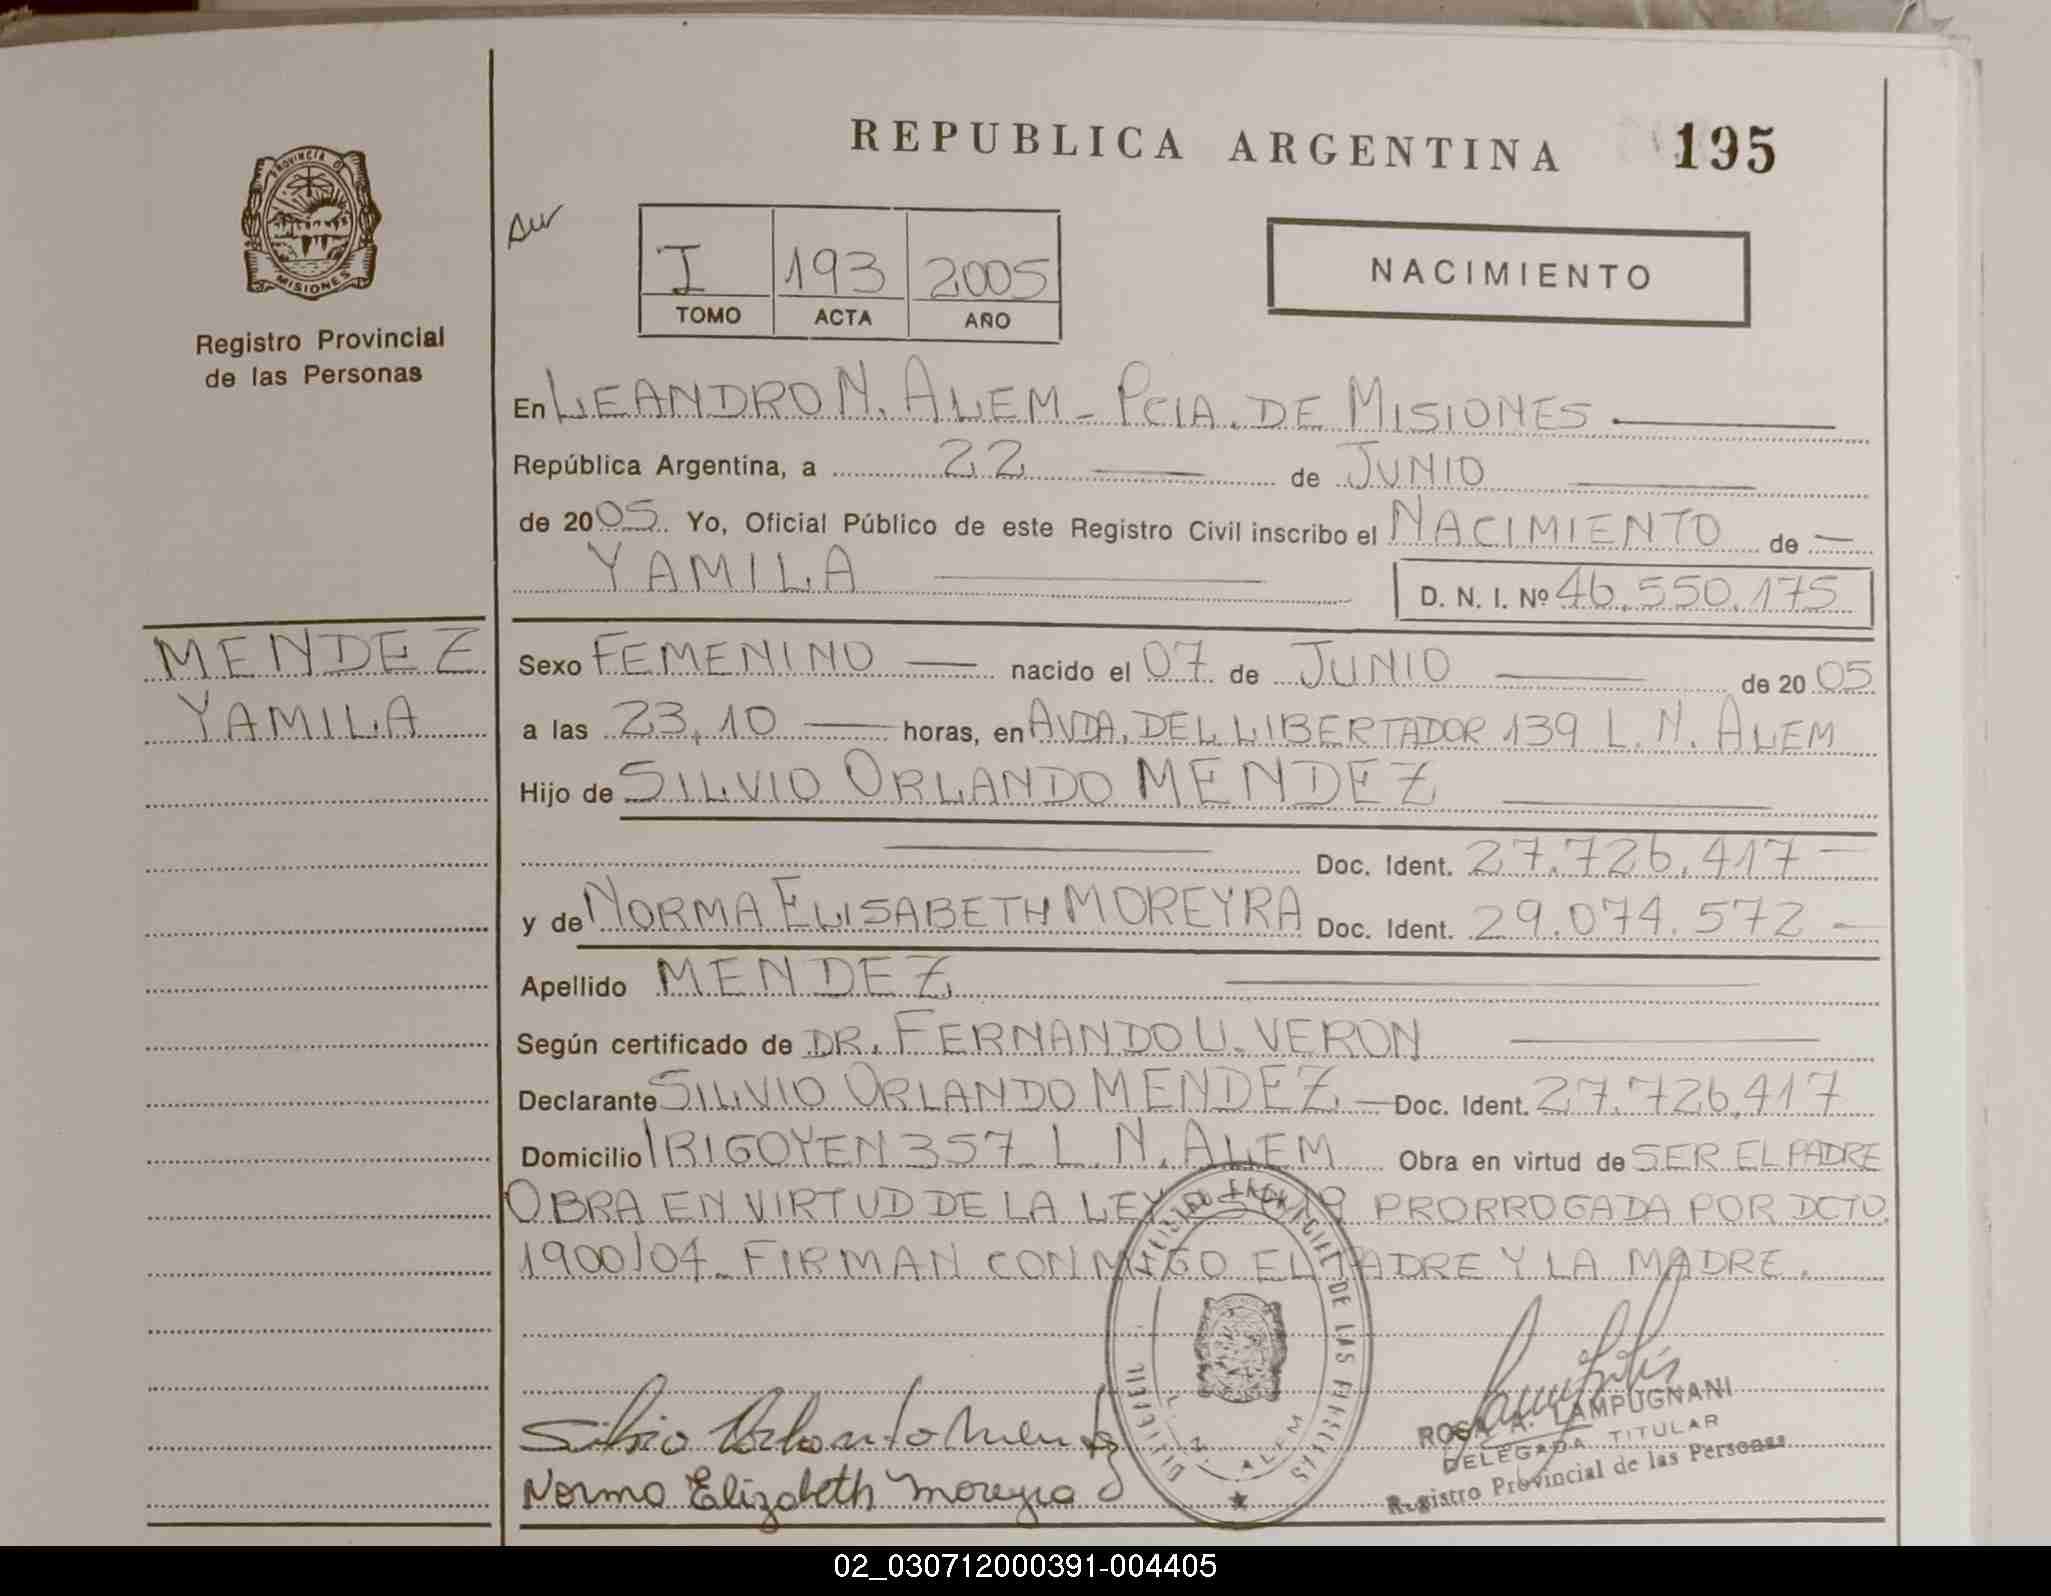 REPUBLICA ARGENTINA 195
PROVINCIA D
MISIONES
Registro Provincial
de las Personas
I 193 2005
TOMO ACTA AÑO
NACIMIENTO
En LEANDRO N. ALEM - PCIA. DE MISIONES
República Argentina, a 22 de JUNIO
de 2005 Yo, Oficial Público de este Registro Civil inscribo el NACIMIENTO de
YAMILA D. N. I. Nº 46.550.175
MENDEZ
YAMILA
Sexo FEMENINO nacido el 07 de JUNIO de 2005
a las 23,10 horas, en AVDA. DEL LIBERTADOR 139 L. N. ALEM
Hijo de SILVIO ORLANDO MENDEZ
Doc. Ident. 27.726.417
y de NORMA ELISABETH MOREYRA Doc. Ident. 29.074.572
Apellido MENDEZ
Según certificado de DR. FERNANDO U. VERON
Declarante SILVIO ORLANDO MENDEZ Doc. Ident. 27.726.417
Domicilio IRIGOYEN 357 L. N. ALEM Obra en virtud de SER EL PADRE
OBRA EN VIRTUD DE LA LEY PRORROGADA POR DCTO.
1900/04 - FIRMAN CONMIGO EL PADRE Y LA MADRE.
Silvio Orlando Mendez
Norma Elizabeth Moreyra
L. N. ALEM
ROSA A. LAMPUGNANI
DELEGADA TITULAR
Registro Provincial de las Personas
02_030712000391-004405